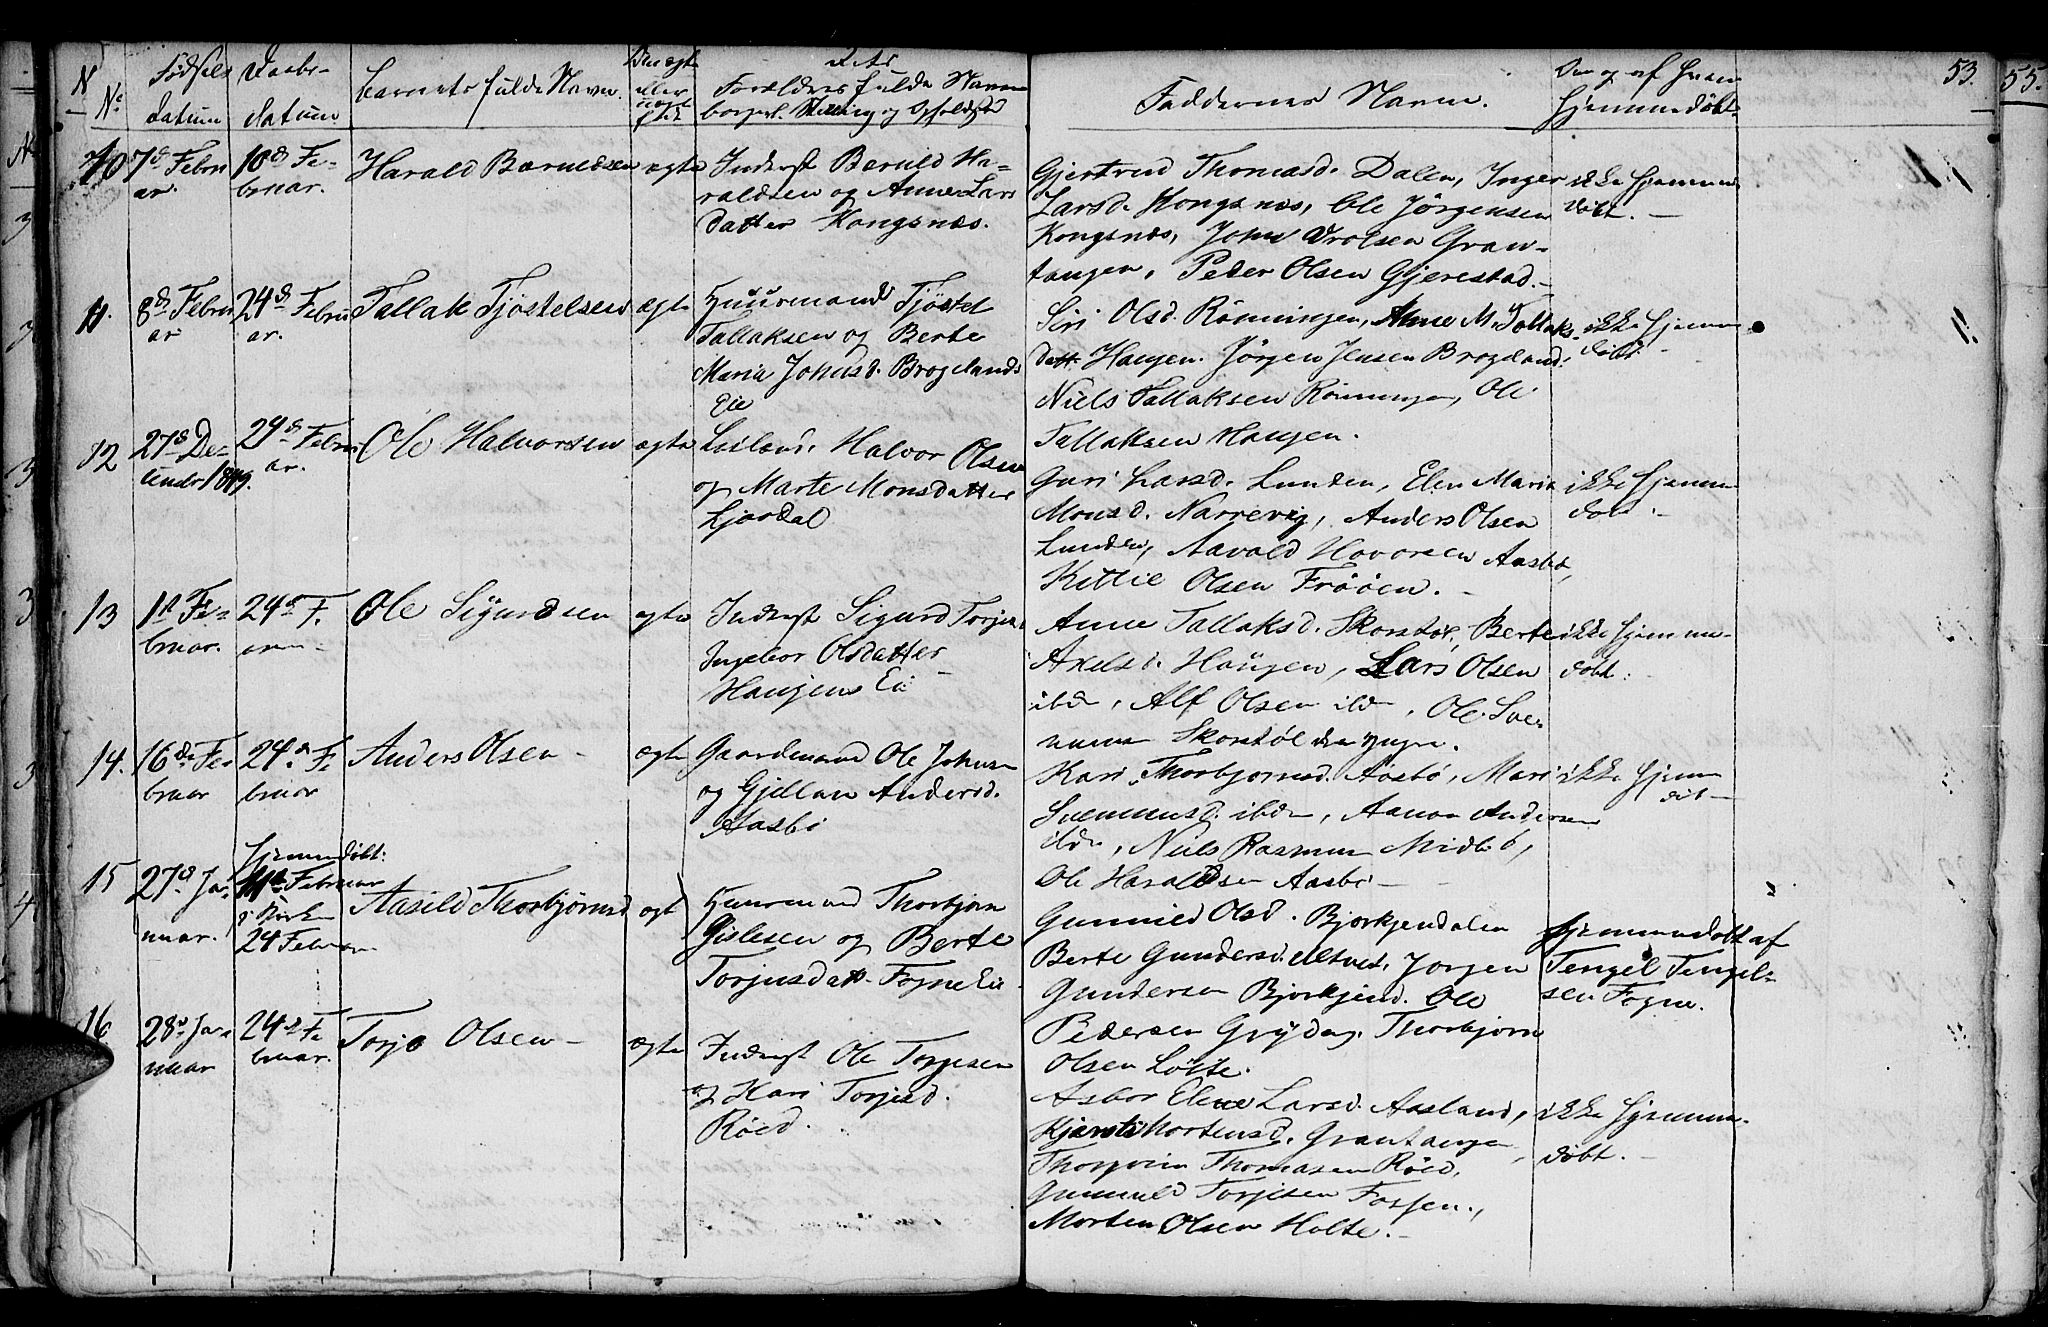 53.
55.
No
Fødsels
datum
Daabs-
datum
barnets fulde Navn.
Om ægte
eller
uægte
født
Forældres fulde Navn
borgerl. Stilling og Opholdssted
Faddernes Navne.
Om og af hvem
hjemmedøbt.
10
7d Febru
ar.
10d Fe-
bruar.
Harald Beruldsen
ægte
Inderst Beruld Ha-
raldsen og Anne Lars
datter Kongsnæs.
Gjertrud Thomasd. Dalen, Inger
Larsd. Kongsnæs, Ole Jörgensen
Kongsnæs, John Orolsen Gran-
tangen, Peder Olsen Gjerestad.-
ikke hjemme
døbt.-
11.
8d Febru
ar
24d Febru
ar.
Tallak Tjöstelsen
ægte
Huusmand Tjöstel
Tallaksen og Berte
Maria Johnsd. Brogelands
Eie
Siri Olsd. Rönningen, Anne M. Tallaks-
datt. Haugen. Jörgen Jensen Brogeland.
Niels Tallaksen Rönningen, Ole
Tallaksen Haugen.
ikke hjemme
døbt -
12
27d De-
cember 1849.
24d Febru
ar.
Ole Halvorsen
ægte
Halvor Olsen
og Marte Monsdatter
Ljosdal
Guri Larsd. Lunden, Elen Maria
Monsd. Narrevig, Anders Olsen
Lunden, Aavold Hovorsen Aasbø,
Kittil Olsen Frööen.-
ikke hjemme
døbt.-
13
1st Fe-
bruar.
24d F.
Ole Sigurdsen
ægte
Inderst Sigurd Torjus.
Ingebor Olsdatter
Haugens Eie
Anne Tallaksd. Skorstøl, Berte
Axelsd. Haugen, Lars Olsen
ibdm, Alf Olsen ibdm, Ole Sve-
numsen Skorstøl den yngre.
ikke hjemme-
døbt.
14.
16de Fe-
bruar
24d Fe
bruar
Anders Olsen -
ægte
Gaardmand Ole Johnsen
og Gjellau Andersd.
Aasbø
Kari Thorbjørnsd. Aasbø, Mari
Svennumsd. ibdm, Aanon Andersen
ibdm, Niels Rasmusen Midtbø,
Ole Haraldsen Aasbø -
ikke hjemme
døbt -
15
27d Ja-
nuar.
hjemmedøbt:
Februar
i Kirken
24 Februar
Aasild Thorbjørnsd
ægt
Huusmand Thorbjörn
Gislesen og Berte
Torjusdatt. Fogne Eie
Gunnild Olsd. Bjorkjendalen
Berte Gundersd. Jorgen
Gundersen Bjorkjend. Ole
Pedersen Grydag. Thorbjørn
Olsen Løite.
hjemmedøbt af
Tengel Tengel-
sen Fogne.
16
28d Ja-
nuar
24d Fe
bruar.
Torje Olsen -
ægte
Inderst Ole Torjesen
og Kari Torjusd.
Röed.
Asbor Elene Larsd. Aasland,
Kjersti Mortensd. Grantangen,
Thorsvin Thomasen Röed,
Gunnuld Torjesen Fossen.,
Morten Olsen Holte.-
ikke hjemme-
døbt.-